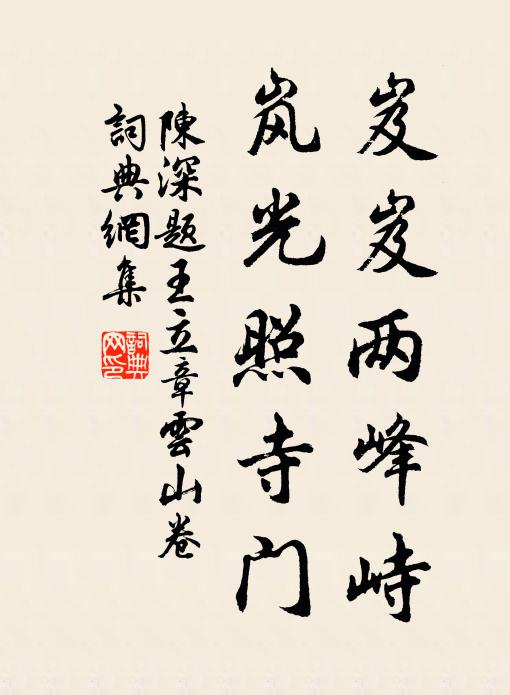 岌岌两峰峙
岚光照寺门
陳深题王立章雲山卷
詞典網集
詞典网印